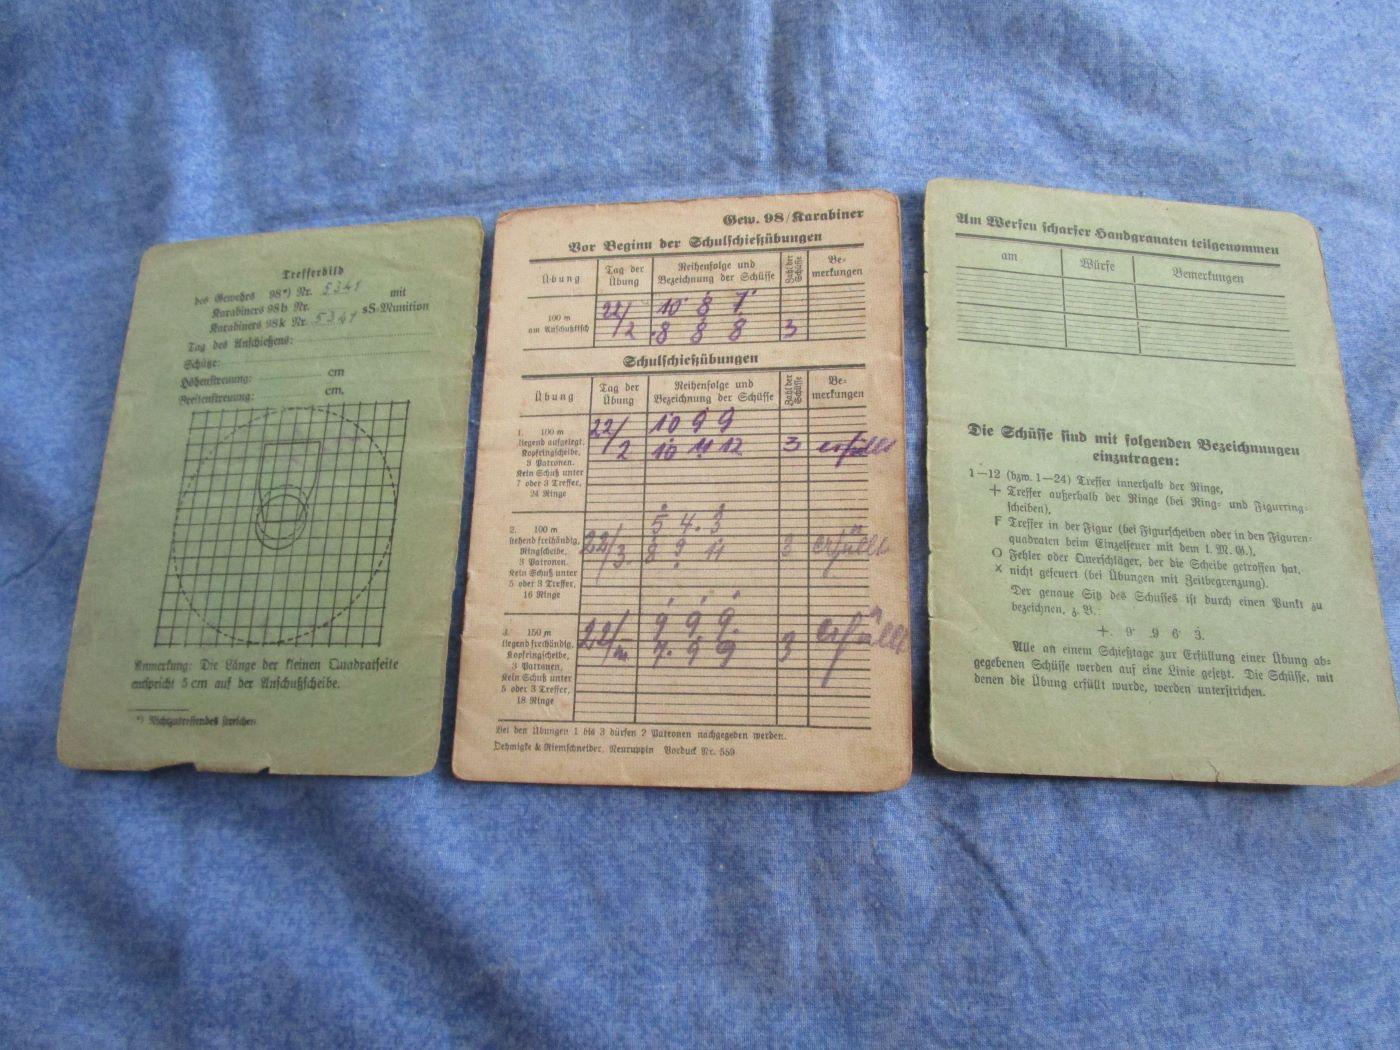 Trefferbild
des Gewehrs 98*) Nr. 5341 mit
Karabiners 98b Nr. sS-Munition
Karabiners 98k Nr. 5341
Tag des Anschießens:
Schütze:
Höhenstreuung: cm
Breitenstreuung: cm.
Anmerkung: Die Länge der kleinen Quadratseite
entspricht 5 cm auf der Anschußscheibe.
*) Nichtzutreffendes streichen
Gew. 98/Karabiner
Vor Beginn der Schulschießübungen
Übung
Tag der
Übung
Reihenfolge und
Bezeichnung der Schüsse
Zahl der
Schüsse
Be-
merkungen
100 m
am Anschußtisch
22/2
10 8 7
8 8 8 3
Schulschießübungen
Übung
Tag der
Übung
Reihenfolge und
Bezeichnung der Schüsse
Zahl der
Schüsse
Be-
merkungen
1. 100 m
liegend aufgelegt,
Kopfringscheibe,
3 Patronen.
Kein Schuß unter
7 oder 3 Treffer,
24 Ringe
22/2
10 9 9
10 11 12 3 erfüllt
2. 100 m
stehend freihändig,
Ringscheibe,
3 Patronen.
Kein Schuß unter
5 oder 3 Treffer,
16 Ringe
22/3.
5 4. 3
8 9 11 3 erfüllt
3. 150 m
liegend freihändig,
Kopfringscheibe,
3 Patronen,
Kein Schuß unter
5 oder 3 Treffer,
18 Ringe
9 9 9
7. 9 9 3 erfüllt
Bei den Übungen 1 bis 3 dürfen 2 Patronen nachgegeben werden.
Oehmigke & Riemschneider, Neuruppin Vorduck Nr. 559
Am Werfen scharfer Handgranaten teilgenommen
am Würfe Bemerkungen
Die Schüsse sind mit folgenden Bezeichnungen
einzutragen:
1—12 (bzw. 1—24) Treffer innerhalb der Ringe,
+ Treffer außerhalb der Ringe (bei Ring- und Figurring-
scheiben),
F Treffer in der Figur (bei Figurscheiben oder in den Figuren-
quadraten beim Einzelfeuer mit dem l. M. G.),
O Fehler oder Querschläger, der die Scheibe getroffen hat,
× nicht gefeuert (bei Übungen mit Zeitbegrenzung).
Der genaue Sitz des Schusses ist durch einen Punkt zu
bezeichnen, z. B.:
+. 9· .9 6· 3.
Alle an einem Schießtage zur Erfüllung einer Übung ab-
gegebenen Schüsse werden auf eine Linie gesetzt. Die Schüsse, mit
denen die Übung erfüllt wurde, werden unterstrichen.